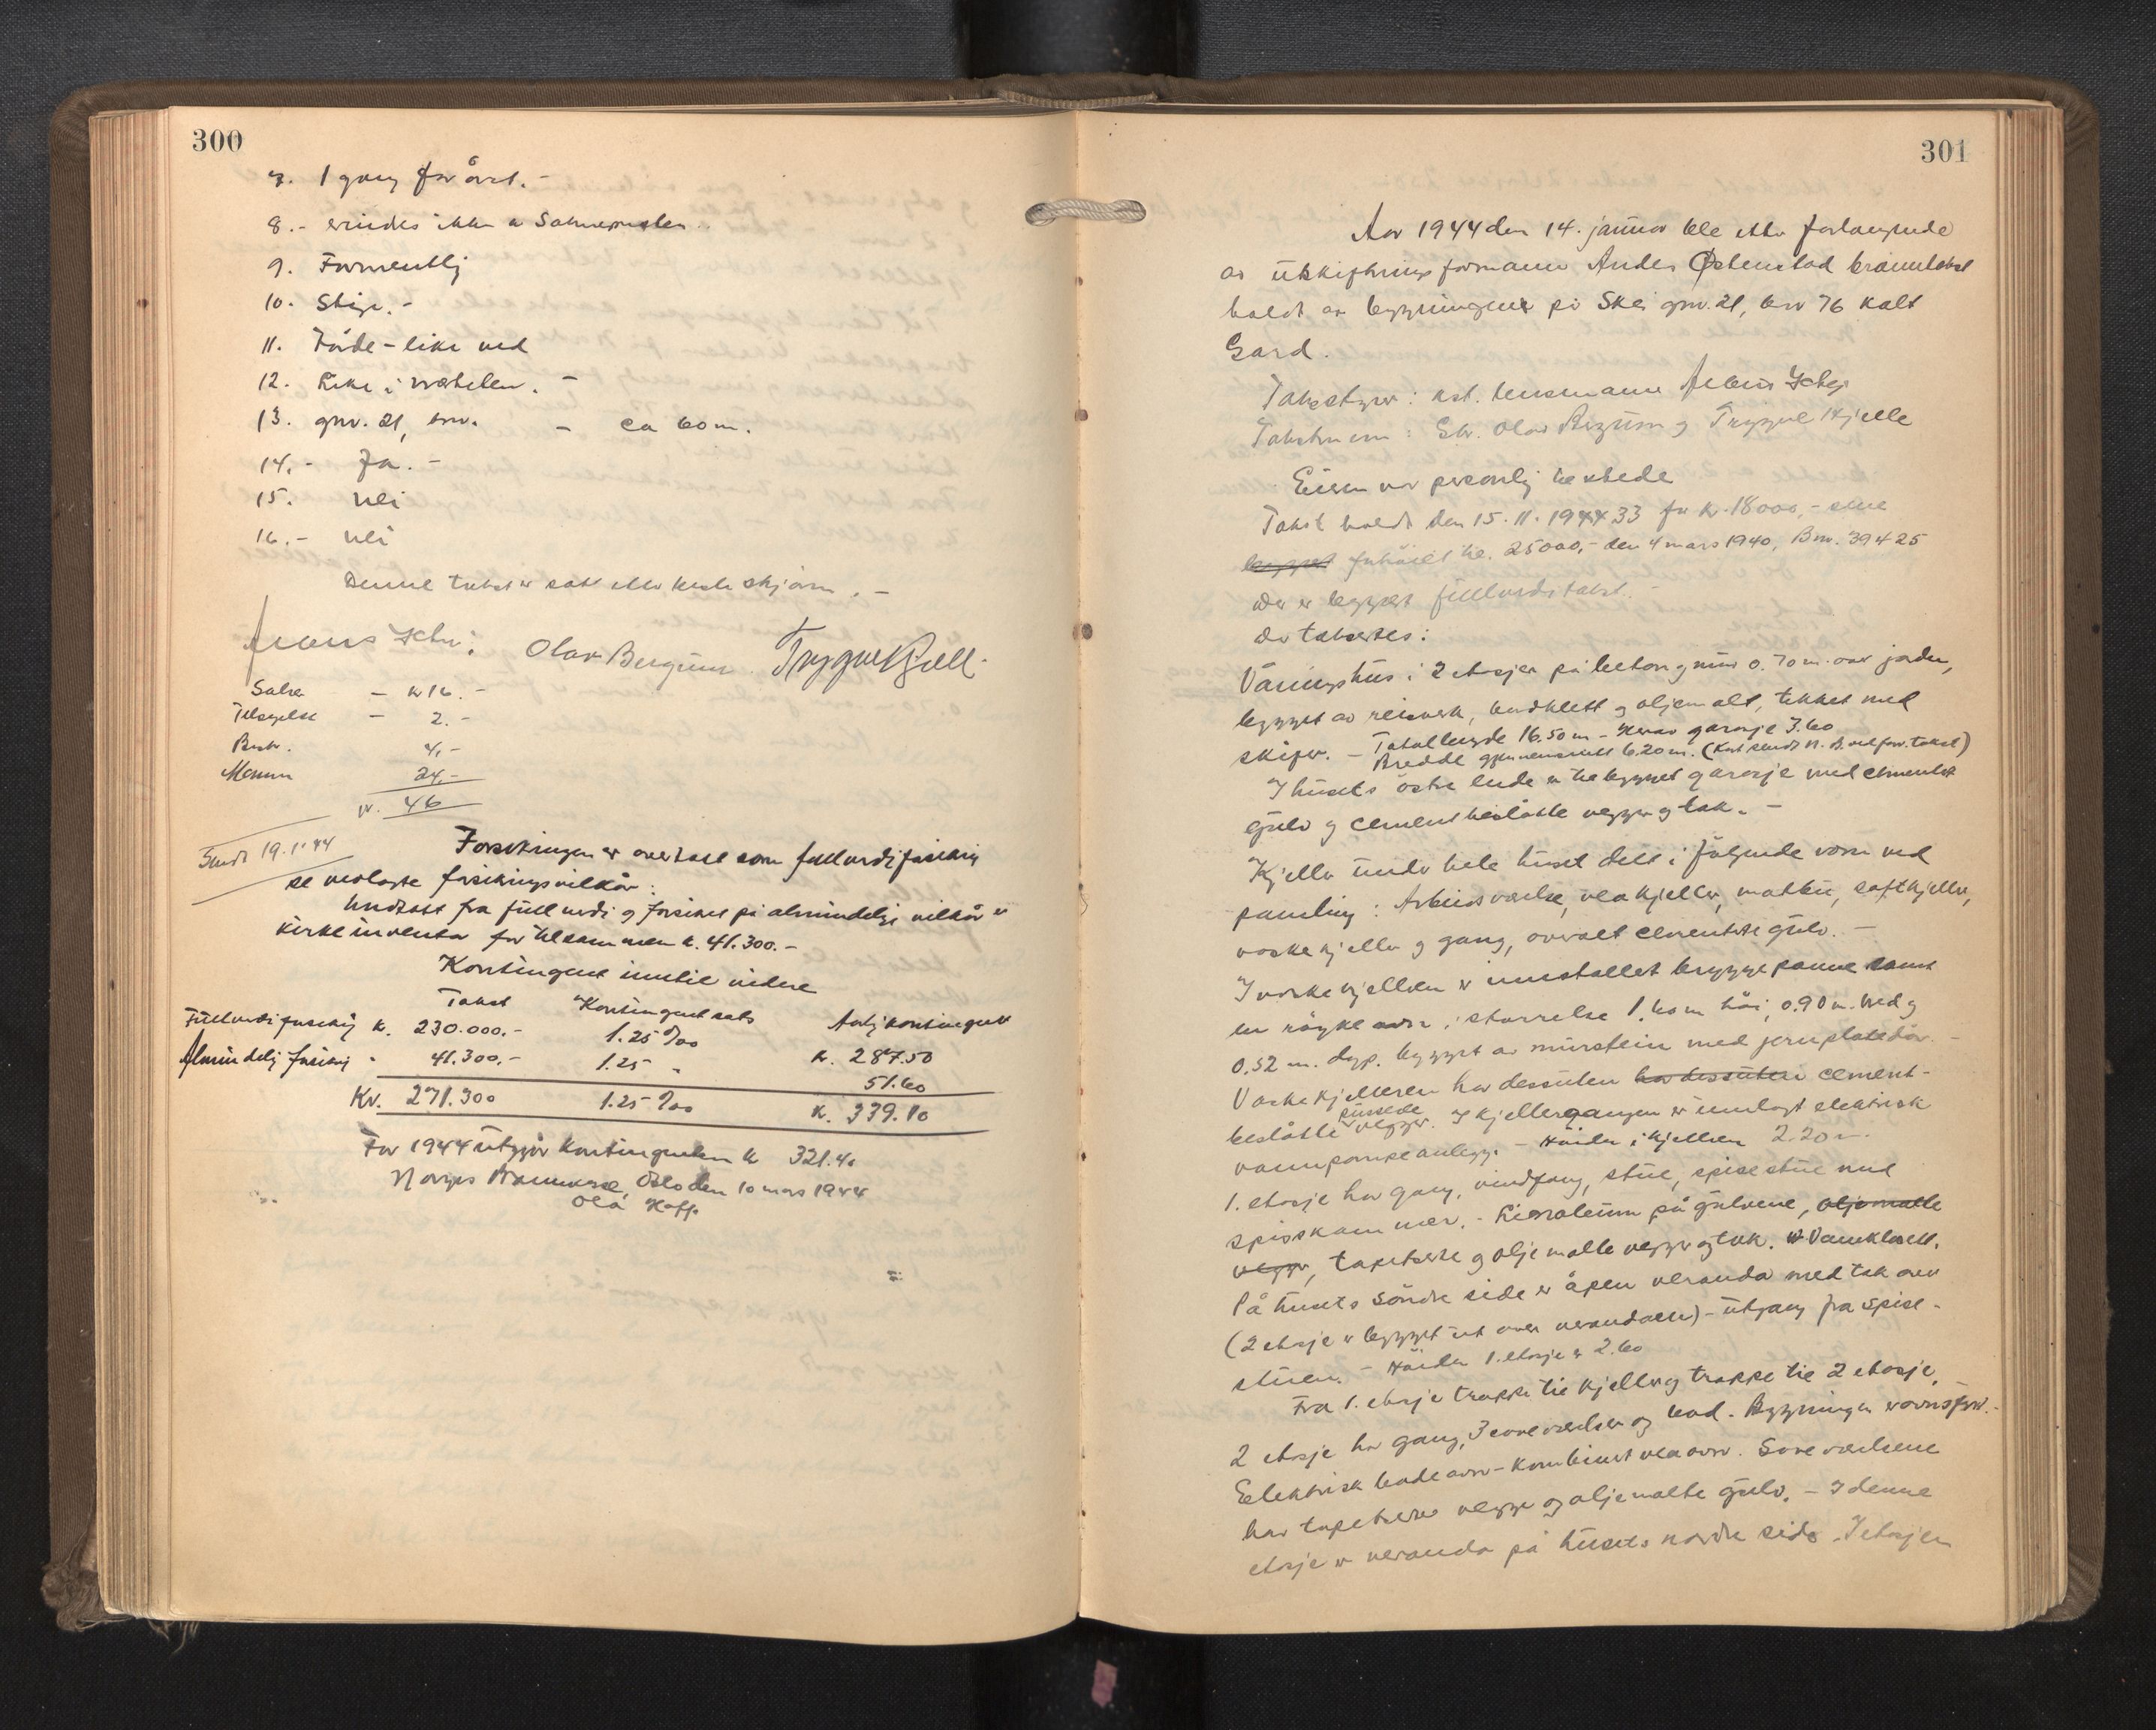 300
7. 1 gang for året. -
8. - 
9. Formentlig
10. Stige. -
11. Förde - like ved
12. Like i nærheten. -
13. gnr. 21, bnr. - ca 60 m.
14. - Ja. -
15. Nei
16. - Nei
Denne takst er satt etter beste skjönn. -
Olav Bergum Trygve Kjelle
Salær - kr 16. -
Tilsigelse - 2. -
Besk. 4, -
Menn 24, -
kr. 46
Sendt 19.1.'44
Forsikringen er overtatt som fullverdiforsikring
se vedlagte forsikringsvilkår:
Undtatt fra fullverdi og forsikret på almindelige vilkår er
kirkeinventar for tilsammen k. 41.300. -
Kontingent inntil videre
Takst Kontingentsats Årlig kontingent
Fullverdiforsikring k. 230.000. - 1.25 ‰ k. 287.50
Almindelig forsikring " 41.300, - 1.25 " 51.60
Kr. 271.300 1.25 ‰ k. 339.10
For 1944 utgjör kontingenten k 321.40
Norges Brannkasse, Oslo den 10 mars 1944
Ola Hoff
301
Aar 1944 den 14. januar ble etter forlangende
av utskiftningsformann Anders Østenstad branntakst
holdt av bygningene på Skei gnr. 21, bnr 76 kalt
Gard.
Takstyrer: kst. lensmann
Takstmenn: Gbr. Olav Bergum og Trygve Kjelle
Eieren var personlig tilstede
Takst holdt den 15.11.1944 33 for kr. 18000, - sene
bygget forhöiet til 25000, - den 4 mars 1940, Bnr. 39425
Der er bygget fullverditakst. -
Der takseres:
Våningshus i 2 etasjer på betongmur 0.70 m. over jorden,
bygget av reisverk, bordklett og oljemalt, tekket med
skifer. - Total lengde 16.50 m - Herav garasje 3.60
Bredde gjennemsnitt 6.20 m. (Kart sendt N. B. ved forr. takst)
I husets östre ende er tilbygget garasje med cementert
gulv og cementbeslåtte vegger og tak. -
Kjeller under hele huset delt i fölgende rom ved
paneling: Arbeidsværelse, vedkjeller, matbu, saftkjeller,
vaskekjeller og gang, overalt cementert gulv. -
I vaskekjelleren er innstallet bryggepanne samt
en röykeovn i störrelse 1.60 m höi, 0.90 m. bred og
0.52 m. dyp. bygget av murstein med jernplatedör. -
Vaskekjelleren har dessuten har dessuten cement-
beslåtte pussede vegger. I kjellergangen er innlagt elektrisk
vannpumpeanlegg. - Höiden i kjelleren 2.20 m.
1. etasje har gang, vindfang, stue, spisestue med
spisskammer. - Linoleum på gulvene, oljemalte
vegger, tapetserte og oljemalte vegger og tak. Vannklosett.
På husets söndre side er åpen veranda med tak over
(2 etasje er bygget ut over verandaen) - utgang fra spise-
stuen. - Höiden 1. etasje er 2.60
Fra 1. etasje trappe til kjeller og trappe til 2 etasje,
2 etasje har gang, 3 soveværelser og bad. Bygningen er ovnsfyrt. -
Elektrisk badeovn - kombinert vedovn. Soveværelsene
har tapetserte vegger og oljemalte gulv. - I denne
etasje er veranda på husets nordre side. I etasjen